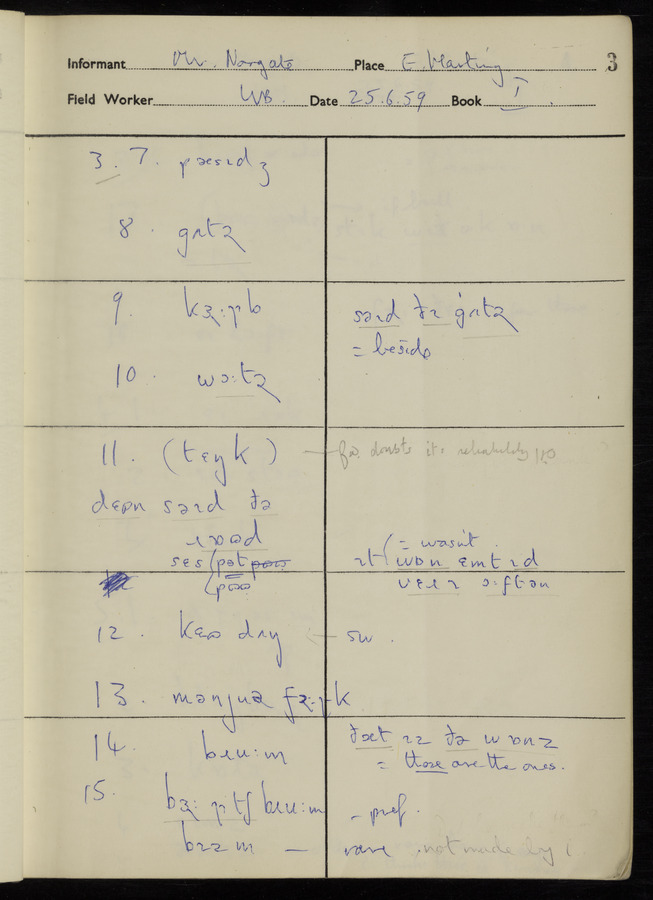 Informant Mr. Norgate Place E. Harting 3
Field Worker WB. Date 25.6.59 Book I.
3. 7. pæsɪdʒ
8. gʌtə
9. kɜ:ɹb saɪd ðɪ gʌtə
= beside
10. wɔ:tə
11. (tɛŋk) — doubts its reliability
dɛʊn saɪd ðə
ɹoʊd
sɛs pɒt
= wasn't
ɪt wɒn ɛmtɪd
ɔ:ftən
12. kɛʊ dʌŋ ← SW.
13. mənjuə fɔ:ɹk
14. bɹu:m ðæt ɪz ðə wɒnz
= those are the ones.
15. bɜ:ɹtʃ bɹu:m – pref.
bɪzm — rare not made by